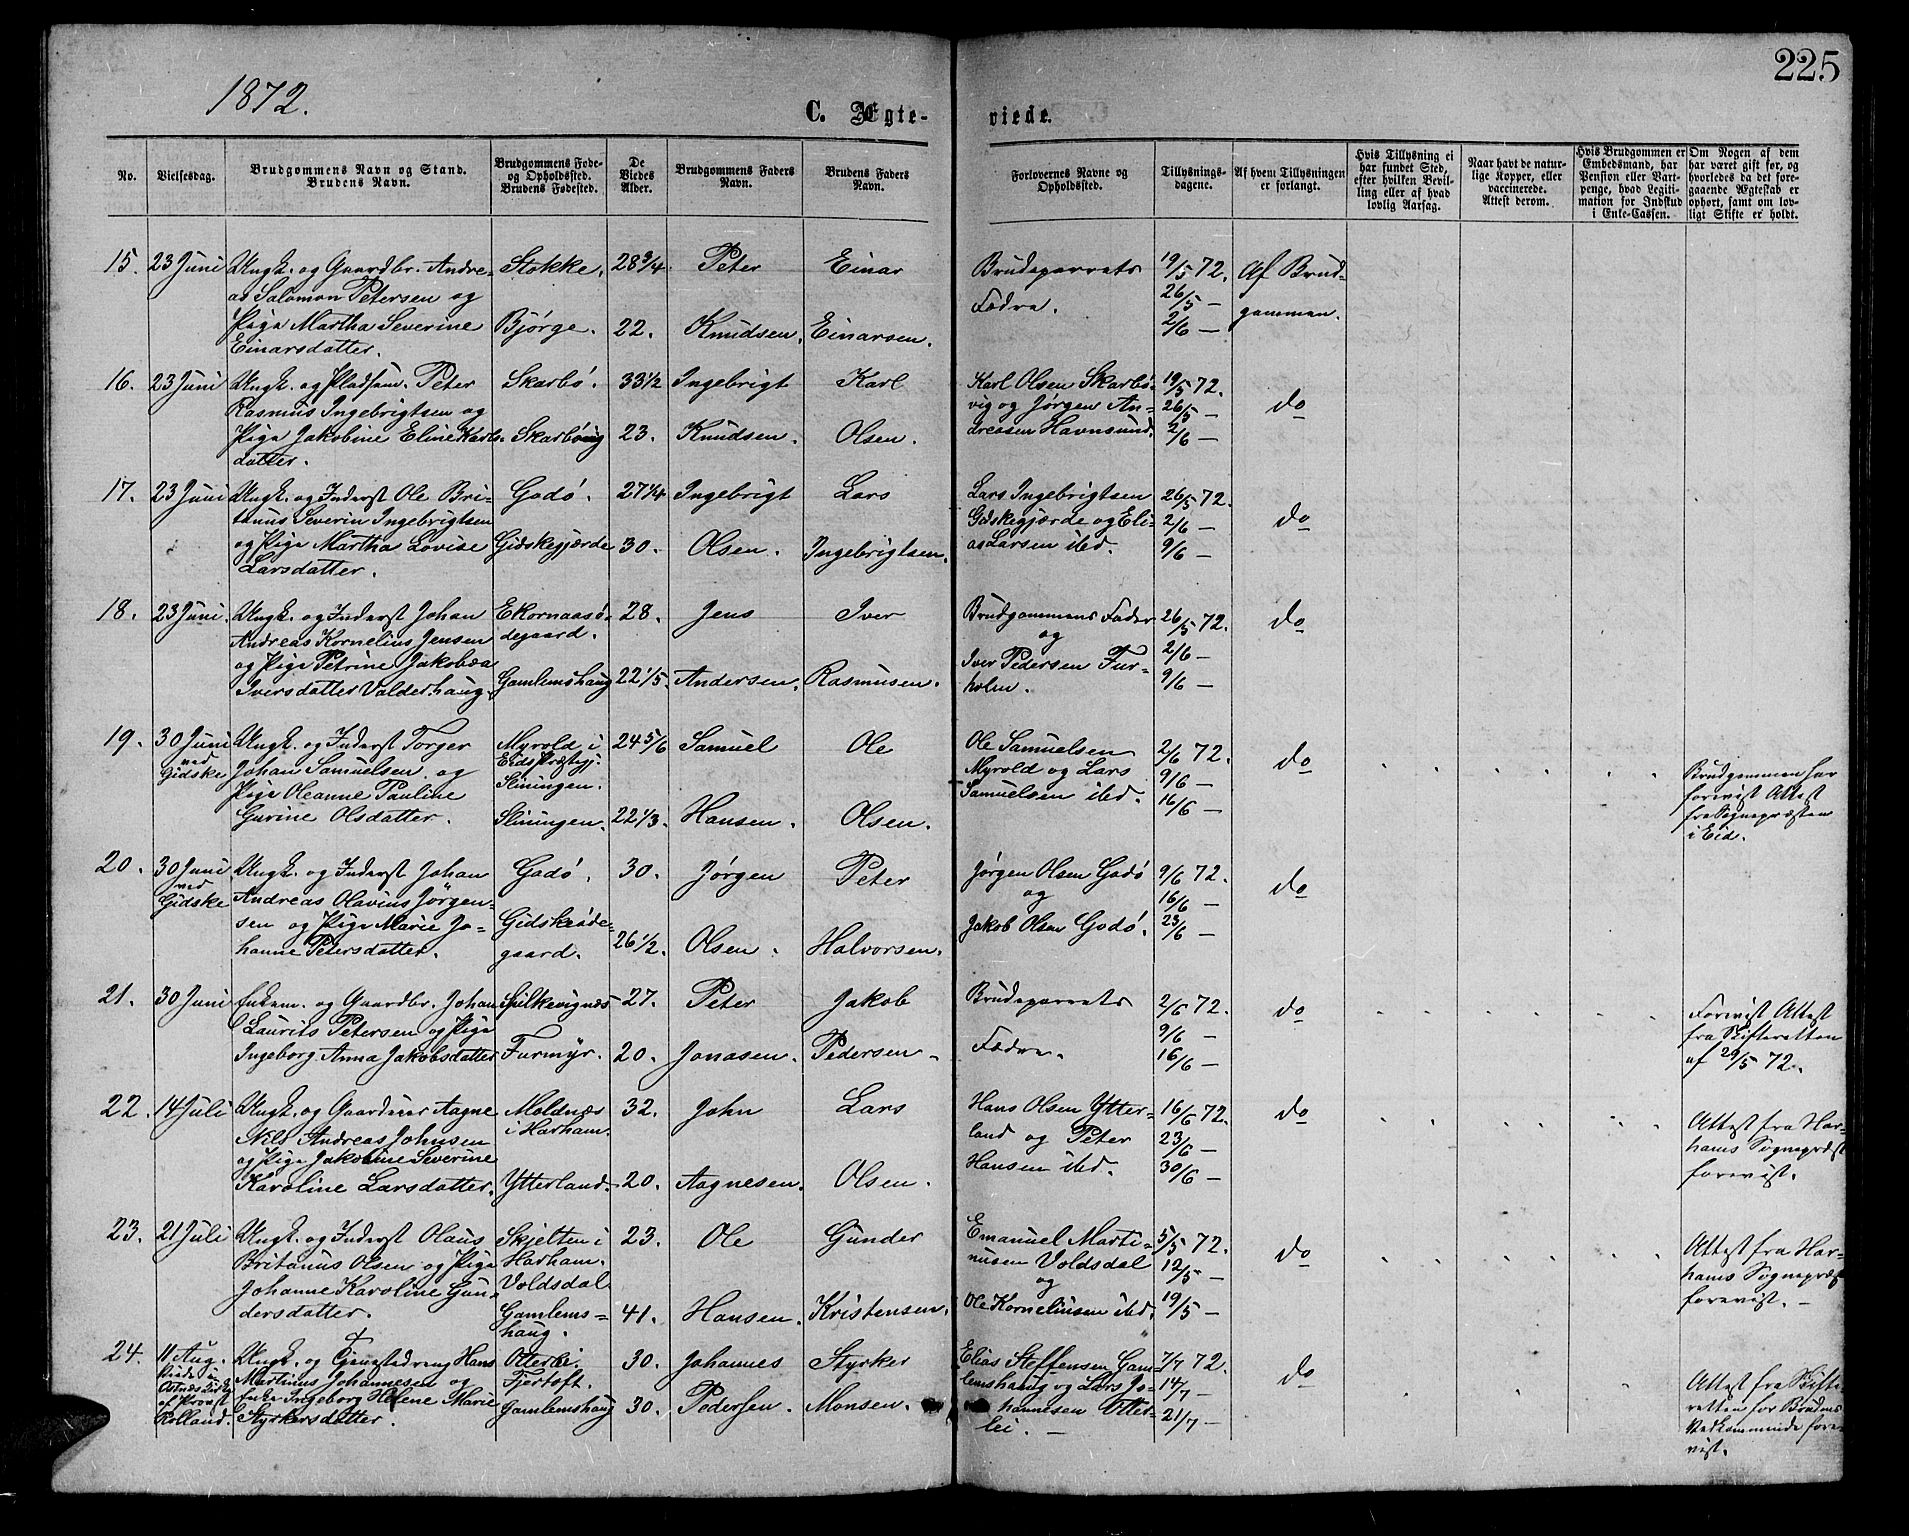 225
1872.
C. Ægte-
viede.
No.
Vielsesdag.
Brudgommens Navn og Stand.
Brudens Navn.
Brudgommens Føde-
og Opholdssted.
Brudens Fødested.
De
Viedes
Alder.
Brudgommens Faders
Navn.
Brudens Faders
Navn.
Forlovernes Navne og
Opholdssted.
Tillysnings-
dagene.
Af hvem Tillysningen
er forlangt.
Hvis Tillysning ei
har fundet Sted,
efter hvilken Bevil-
ling eller af hvad
lovlig Aarsag.
Naar havt de natur-
lige Kopper, eller
vaccinerede.
Attest derom.
Hvis Brudgommen er
Embedsmand, har
Pension eller Vart-
penge, hvad Legiti-
mation for Indskud
i Enke-Cassen.
Om Nogen af dem
har været gift før, og
hvorledes da det fore-
gaaende Ægteskab er
ophørt, samt om lov-
ligt Skifte er holdt.
15. 23 Juni Ungk. og Gaardbr. Andre- Stokke. 28 3/4. Peter Einar Brudeparrets 19/5 72. Af Brud-
as Salomon Petersen og Fædre. 26/5 — gommen.
Pige Martha Severine Bjørge. 22. Knudsen. Einarsen. 2/6 —
Einarsdatter.
16. 23 Juni Ungk. og Pladsm. Peter Skarbø. 33 1/2 Ingebrigt Karl Karl Olsen Skarbø- 19/5 72.
Rasmus Ingebrigtsen og vig og Jørgen An- 26/5 — do
Pige Jakobine Eline Karls- Skarbøvig 23. Knudsen. Olsen. dreasen Havnsund. 2/6 —
datter.
17. 23 Juni Ungk. og Inderst Ole Bri- Godø. 27 1/4 Ingebrigt Lars Lars Ingebrigtsen 26/5 72.
tanus Severin Ingebrigtsen Gidskegjærde og Eli- 2/6 — do
og Pige Martha Lovise Gidskegjærde 30. Olsen. Ingebrigtsen. as Larsen ibd. 9/6 —
Larsdatter.
18. 23 Juni. Ungk. og Inderst Johan Ekornaasø- 28. Jens Iver Brudgommens Fader 26/5 72. do
Andreas Kornelius Jensen degaard. og 2/6 —
og Pige Petrine Jakobæa Gamlemshaug 22 1/5. Andersen. Rasmusen. Iver Pedersen Fur- 9/6 —
Iversdatter Valderhaug. holm.
19. 30 Juni Ungk. og Inderst Torger Myrold i 24 5/6 Samuel Ole Ole Samuelsen 2/6 72. do
ved Johan Samuelsen og Eids Præstegj. Myrold og Lars 9/6 — Brudgommen har
Gidske Pige Oleanne Pauline Slningen. Samuelsen ibd. 16/6 — forevist Attest
Gurine Olsdatter. Slningen. 22 1/3. Hansen. Olsen. fra Sognepræsten
i Eid.
20. 30 Juni Ungk. og Inderst Johan Godø. 30. Jørgen Peter Jørgen Olsen Godø 9/6 72. do
ved Andreas Olavius Jørgen- og 16/6 —
Gidske sen og Pige Marie Jo- Gidskeøde- 26 1/2. Olsen. Halvorsen. Jakob Olsen Godø. 23/6 —
hanne Petersdatter. gaard.
21. 30 Juni Enkem. og Gaardbr. Johan Spilkevignæs 27. Peter Jakob Brudeparrets 2/6 72. do Forevist Attest
Laurits Petersen og Pige 9/6 — fra Skifteretten
Ingeborg Anna Jakobsdatter Furmyr. 20. Jonasen. Pedersen. Fædre. 16/6 — af 29/5 72.
22. 14 Juli Ungk. og Aagne Moldnæs 32. John Lars Hans Olsen Ytter- 16/6 72. do Attest fra Har-
Nils Andreas Johnsen i Harham. land og Peter 23/6 — hams Sognepræst
og Pige Jakobine Severine Hansen ibd. 30/6 — forevist.
Karoline Larsdatter. Ytterland. 20. Aagnesen. Olsen.
23. 21 Juli Ungk. og Inderst Olaus Skjelten i 23. Ole Gunder Emanuel Marti- 5/5 72. do Attest fra Har-
Britanus Olsen og Pige Harham. nusen Voldsdal 12/5 — hams Sognepræst
Johanne Karoline Gun- Voldsdal og forevist. —
dersdatter. Gamlems- 41. Hansen. Kristensen. Ole Korneliusen ibd. 19/5 —
haug.
24. 11 Aug. Ungk. og Tjenestedreng Hans Otterlei. 30. Johannes Styrker Elias Steffensen Gam- 7/7 72. do Attest fra Skifte-
Viede i Martinus Johannesen og Fjørtoft. lemshaug og Lars Jo- 14/7 — retten for Brudens
Enke Ingeborg Helene Marie Gamlemshaug 30. Pedersen. Monsen. hannesen Otter- 21/7 — Vedkommende fore-
af Provst Styrkersdatter. lei. — vist.
Rolland.